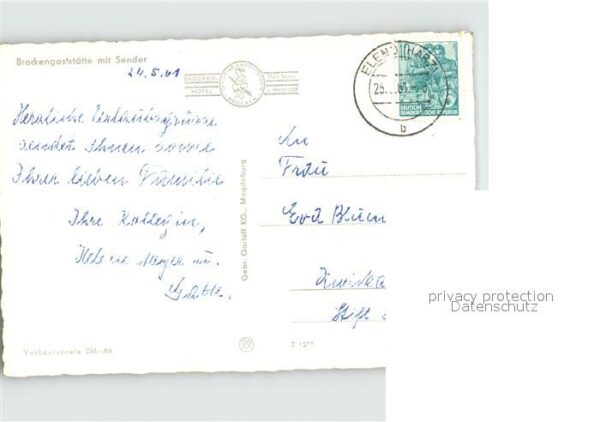 Brockengaststätte mit Sender
24.5.61
BROCKEN
HOTEL
ELEND (HARZ)
b
DEUTSCHE
DEMOKRATISCHE REPUBLIK
Herzliche Urlaubsgrüsse
sendet Ihnen sowie
Ihrer lieben Familie
Ihre Kollegin,
Helene Meyer u.
Gatte.
Gebr. Garloff KG., Magdeburg
An
Frau
Eva Blum
Zwickau
Stift
privacy protection
Datenschutz
Verkaufspreis DM -,20